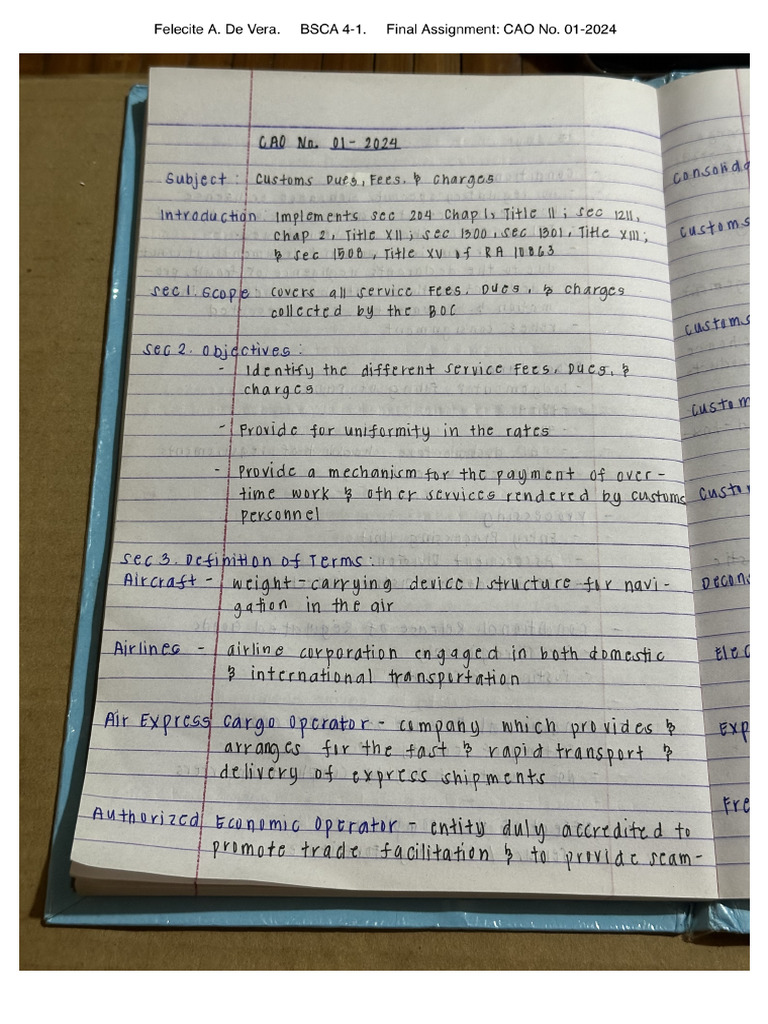 Felecite A. De Vera. BSCA 4-1. Final Assignment: CAO No. 01-2024
CAO No. 01-2024
Subject: Customs Dues, Fees, & Charges
Introduction: Implements sec 204 Chap 1, Title II; sec 1211,
chap 2, Title XII; sec 1300, sec 1301, Title XIII;
& sec 1508, Title XV of RA 10863
Sec 1. Scope covers all service Fees, Dues, & charges
collected by the BOC
Sec 2. Objectives:
- Identify the different service Fees, Dues, &
charges
- Provide for uniformity in the rates
- Provide a mechanism for the payment of over-
time work & other services rendered by customs
personnel
Sec 3. Definition of Terms:
Aircraft - weight-carrying device / structure for navi-
gation in the air
Airlines - airline corporation engaged in both domestic
& international transportation
Air Express Cargo Operator - company which provides &
arranges for the fast & rapid transport &
delivery of express shipments
Authorized Economic Operator - entity duly accredited to
promote trade facilitation & to provide seam-
Consolida
Customs
Customs
Custom
Custo
Decons
Elec
Exp
Fre